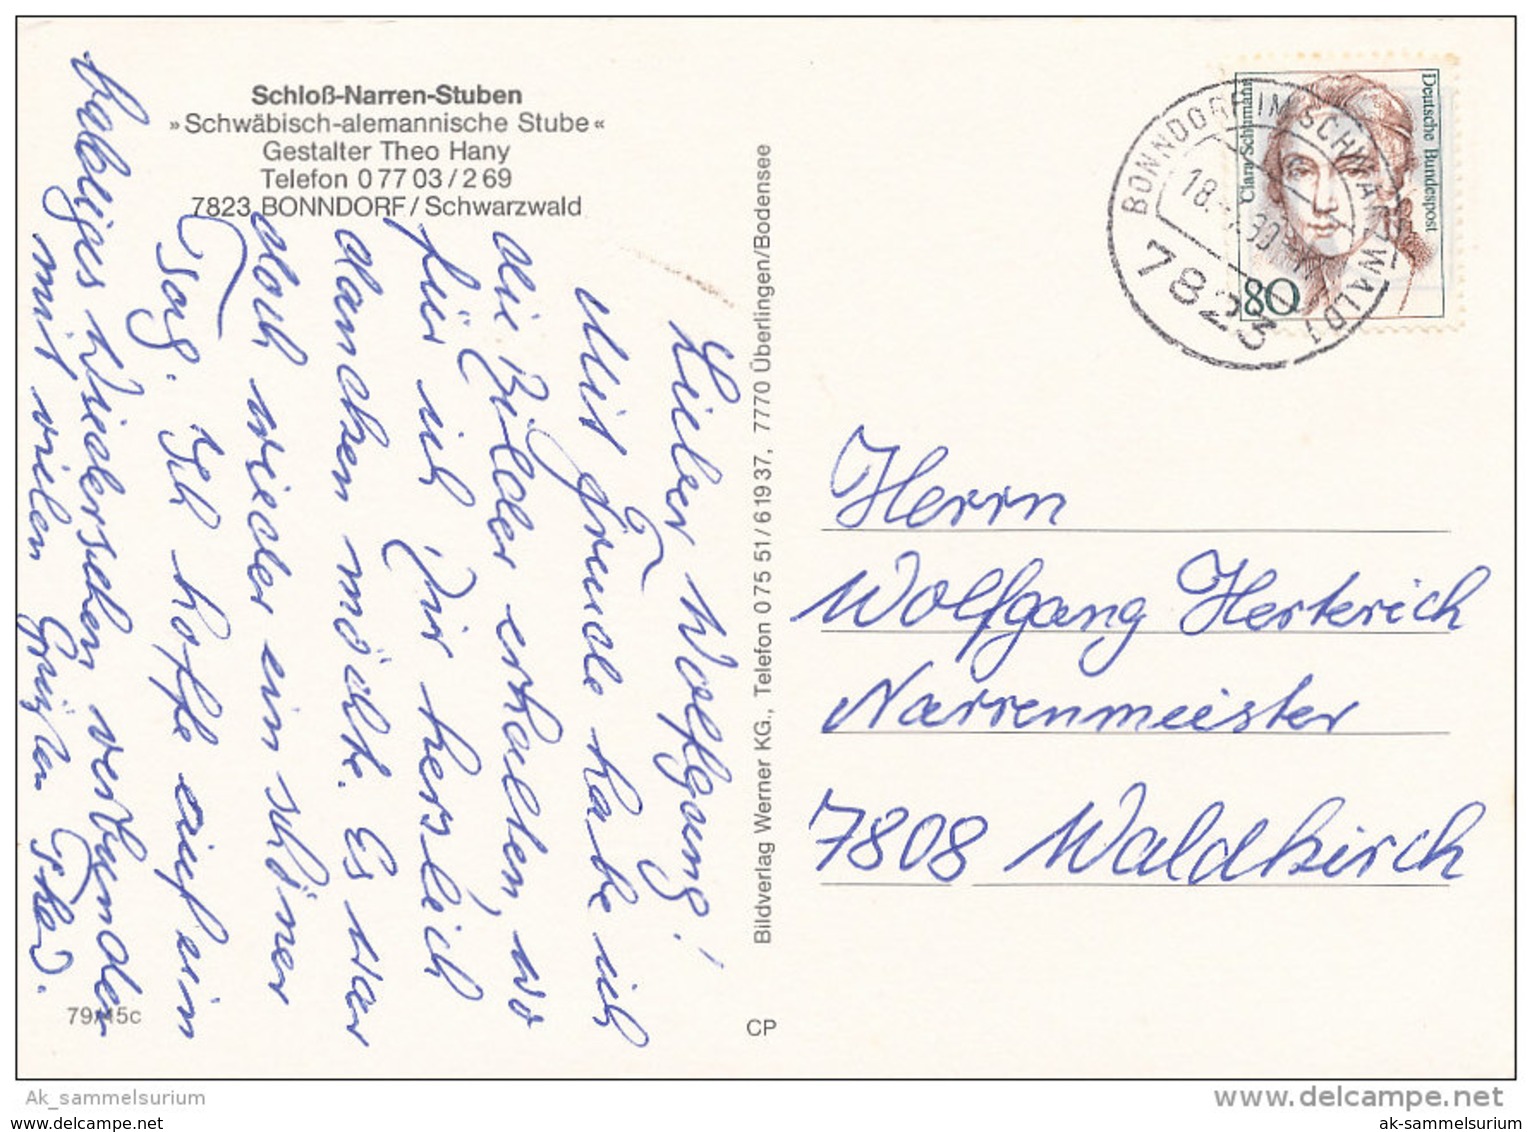 Schloß-Narren-Stuben
»Schwäbisch-alemannische Stube«
Gestalter Theo Hany
Telefon 0 77 03 / 2 69
7823 BONNDORF / Schwarzwald
Lieber Wolfgang!
Mit Freude habe ich
die Bilder erhalten, wo
für ich Dir herzlich
danken möchte. Es war
doch wieder ein schöner
Tag. Ich hoffe auf ein
baldiges Wiedersehen verbunden
mit vielen Grüßen
79/45c
Bildverlag Werner KG., Telefon 0 75 51 / 6 19 37, 7770 Überlingen/Bodensee
CP
Deutsche Bundespost
Clara Schumann
80
BONNDORF IM SCHWARZWALD 1
18.
90
7823
Herrn
Wolfgang Herterich
Narrenmeister
7808 Waldkirch
Ak_sammelsurium
www.delcampe.net
www.delcampe.net
ak-sammelsurium